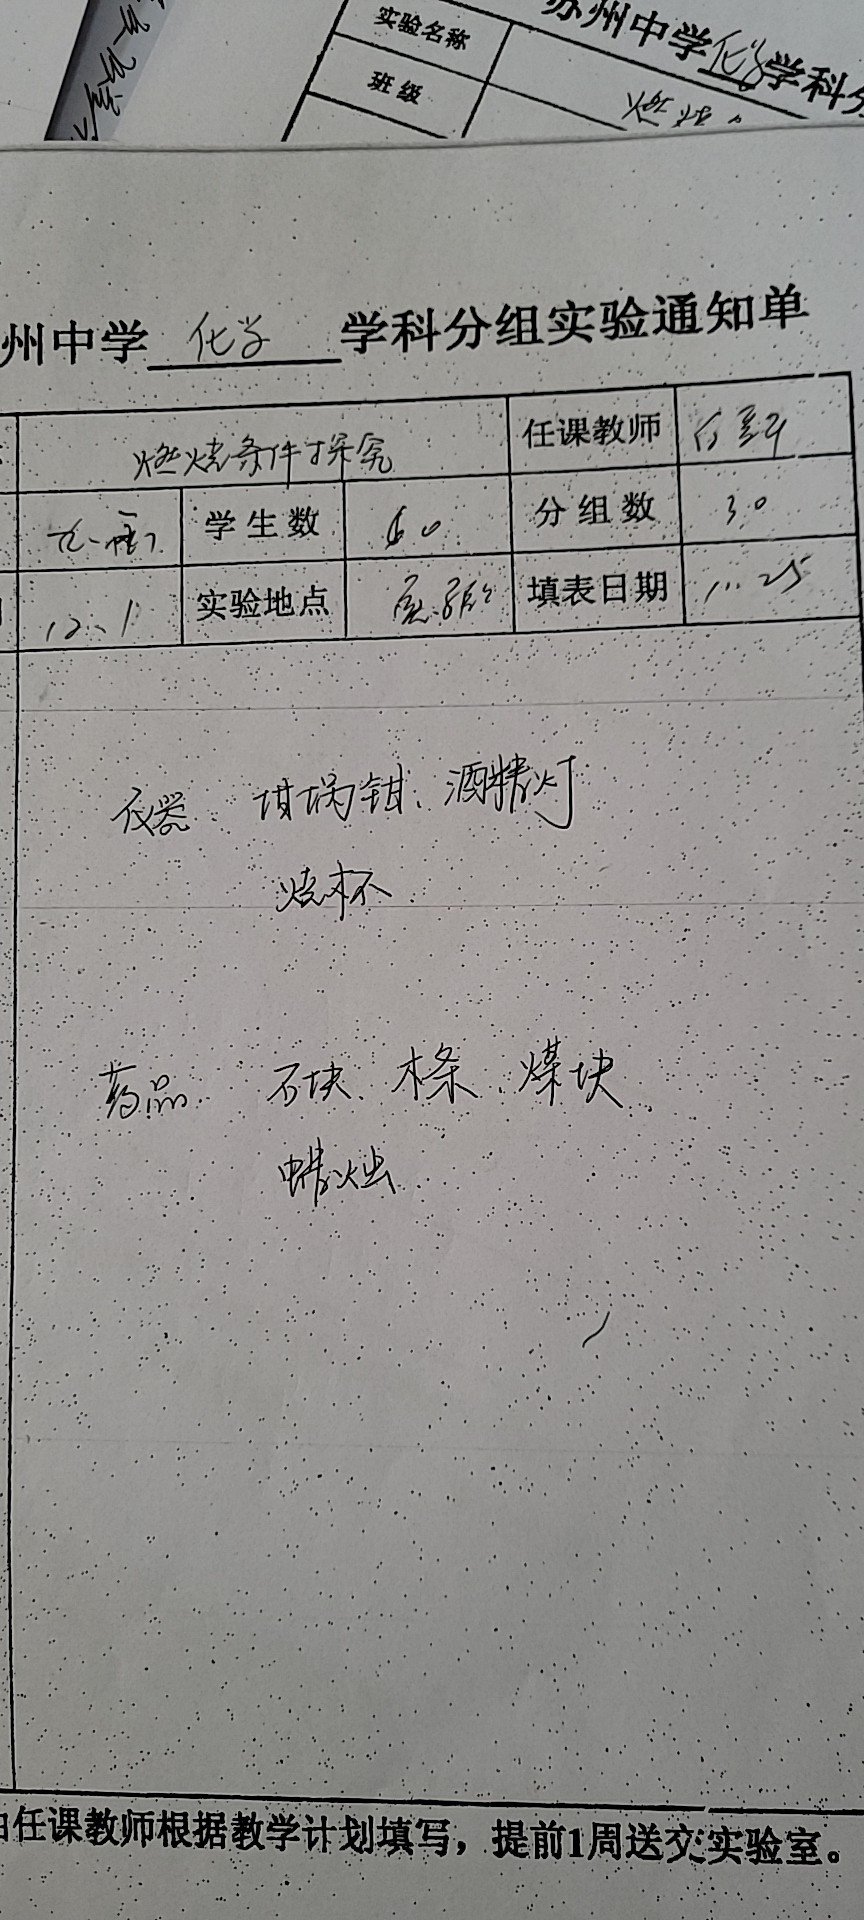 苏州中学化学学科分
实验名称
班级
燃烧
州中学 化学 学科分组实验通知单
燃烧条件探究 任课教师
学生数 60 分组数 30
12.1 实验地点 实验室 填表日期 11.25
仪器 坩埚钳、酒精灯
烧杯
药品 石块、木条、煤块
蜡烛
由任课教师根据教学计划填写，提前1周送交实验室。